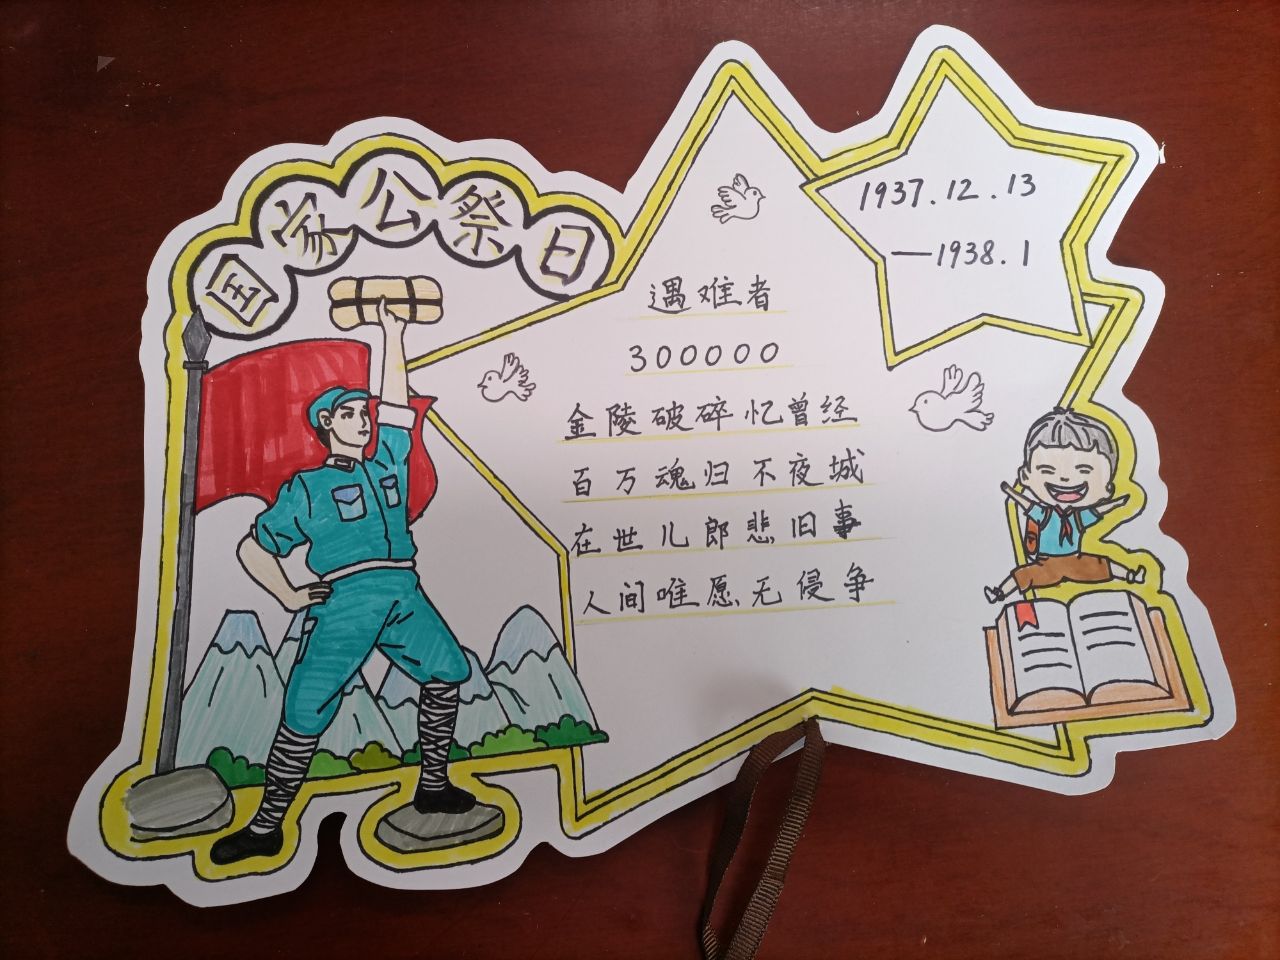 国家公祭日
1937.12.13
—1938.1
遇难者
300000
金陵破碎忆曾经
百万魂归不夜城
在世儿郎悲旧事
人间唯愿无侵争